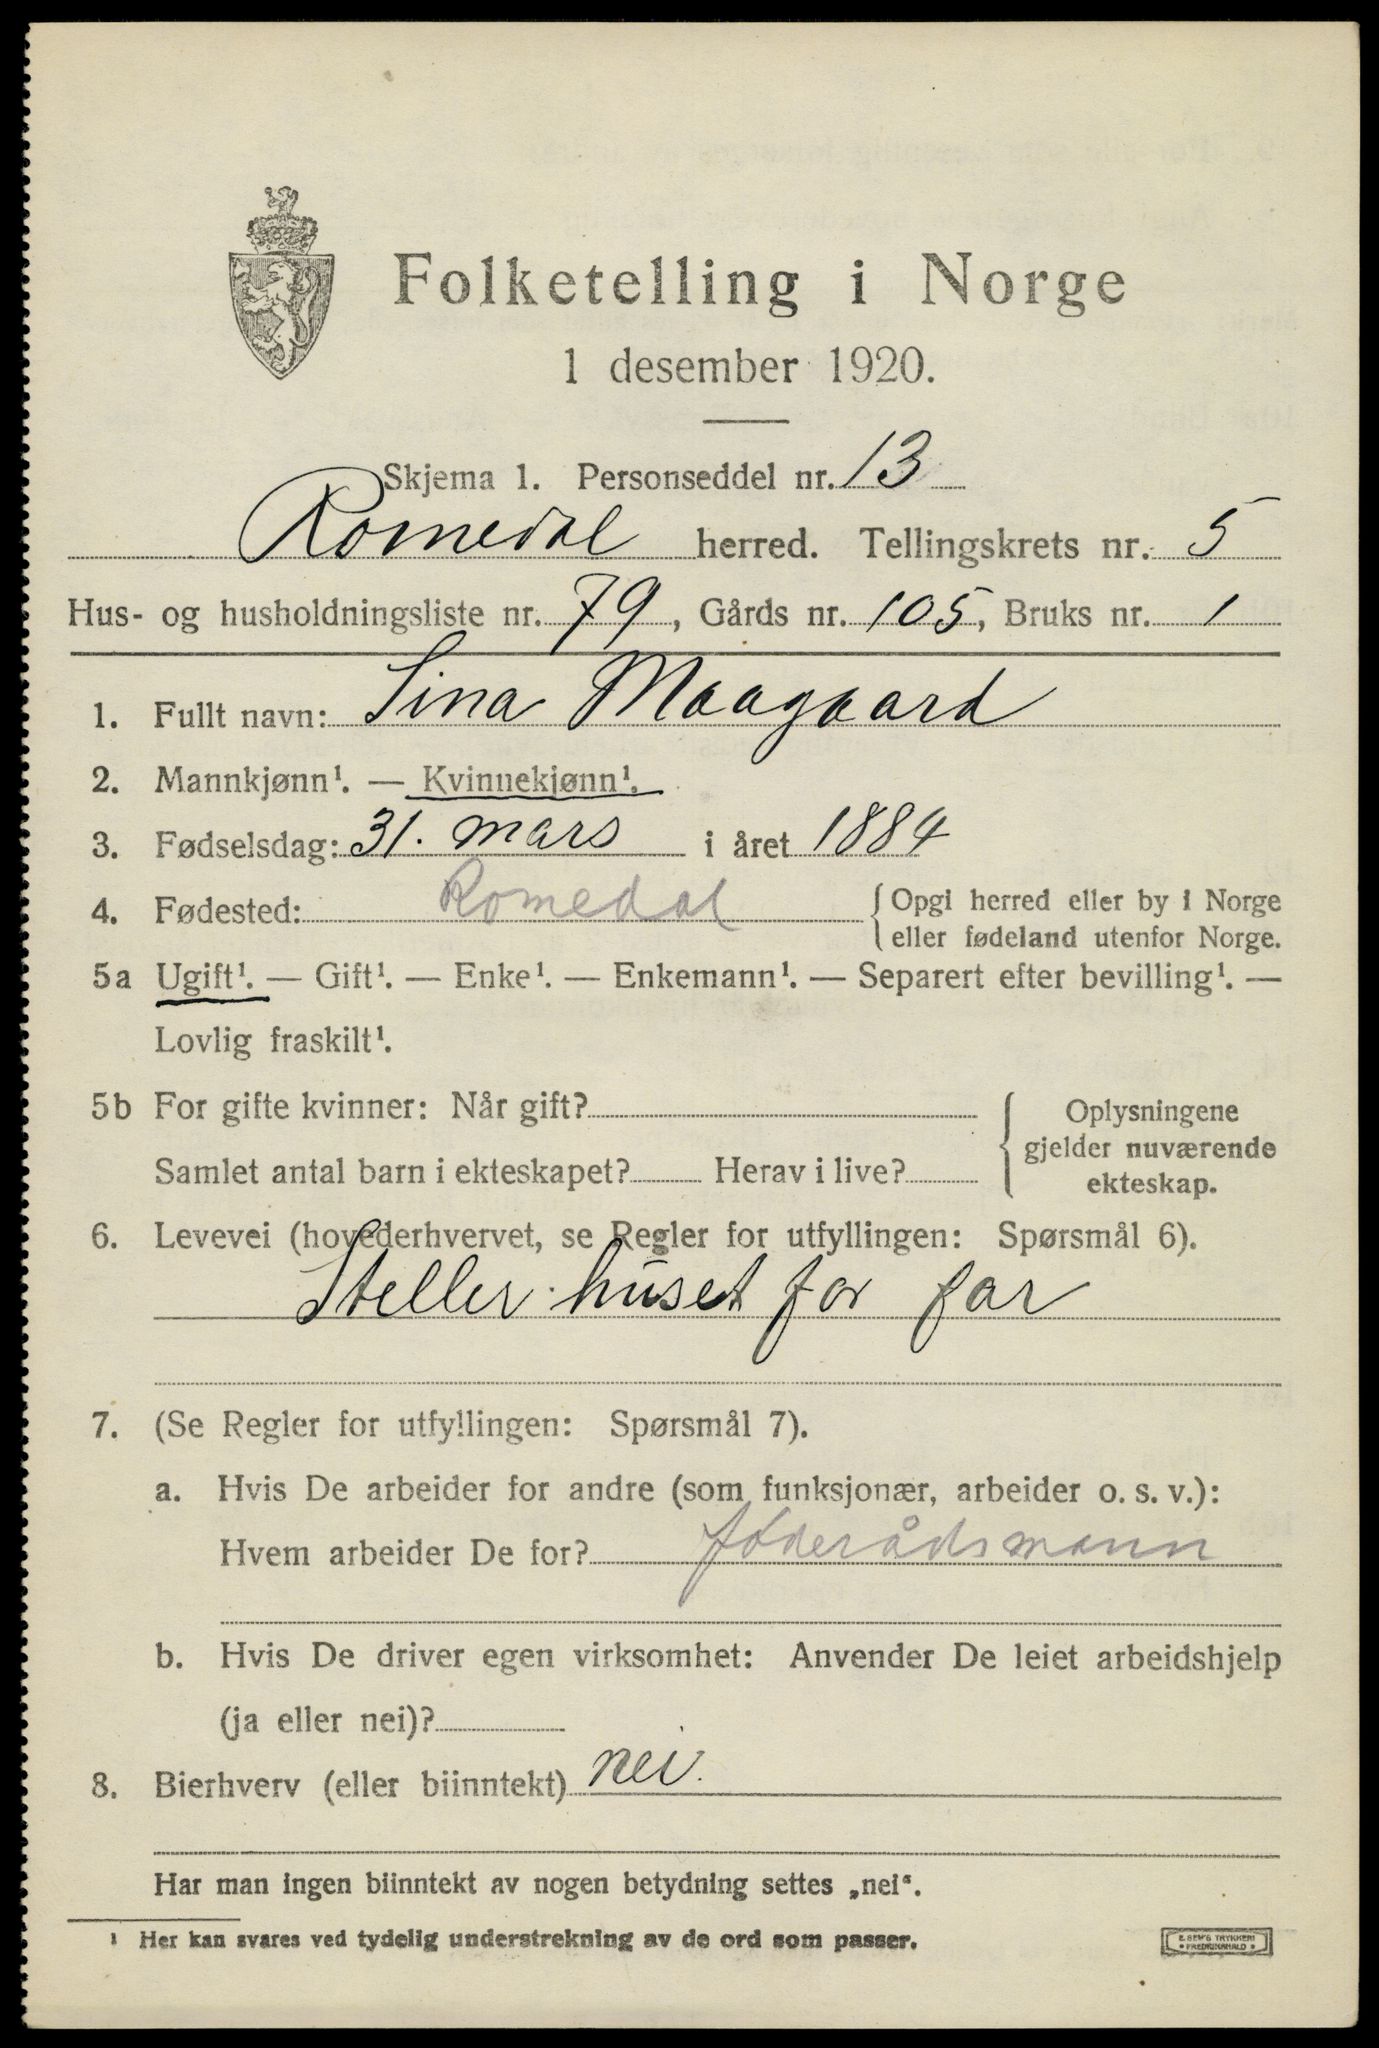 Folketelling i Norge
1 desember 1920.
Skjema 1. Personseddel nr. 13
Romedal herred. Tellingskrets nr. 5
Hus- og husholdningsliste nr. 79, Gårds nr. 105, Bruks nr. 1
1. Fullt navn: Sina Maagaard
2. Mannkjønn¹. — Kvinnekjønn¹.
3. Fødselsdag: 31. mars i året 1884
4. Fødested: Romedal {Opgi herred eller by i Norge
eller fødeland utenfor Norge.
5a Ugift¹. — Gift¹. — Enke¹. — Enkemann¹. — Separert efter bevilling¹. —
Lovlig fraskilt¹.
5b For gifte kvinner: Når gift?
Samlet antal barn i ekteskapet? Herav i live?
Oplysningene
gjelder nuværende
ekteskap.
6. Levevei (hovederhvervet, se Regler for utfyllingen: Spørsmål 6).
Steller huset for far
7. (Se Regler for utfyllingen: Spørsmål 7).
a. Hvis De arbeider for andre (som funksjonær, arbeider o. s. v.):
Hvem arbeider De for? føderådsmann
b. Hvis De driver egen virksomhet: Anvender De leiet arbeidshjelp
(ja eller nei)?
8. Bierhverv (eller biinntekt) nei.
Har man ingen biinntekt av nogen betydning settes „nei“.
¹ Her kan svares ved tydelig understrekning av de ord som passer.
E. SEM'S TRYKKERI
• FREDRIKSHALD •